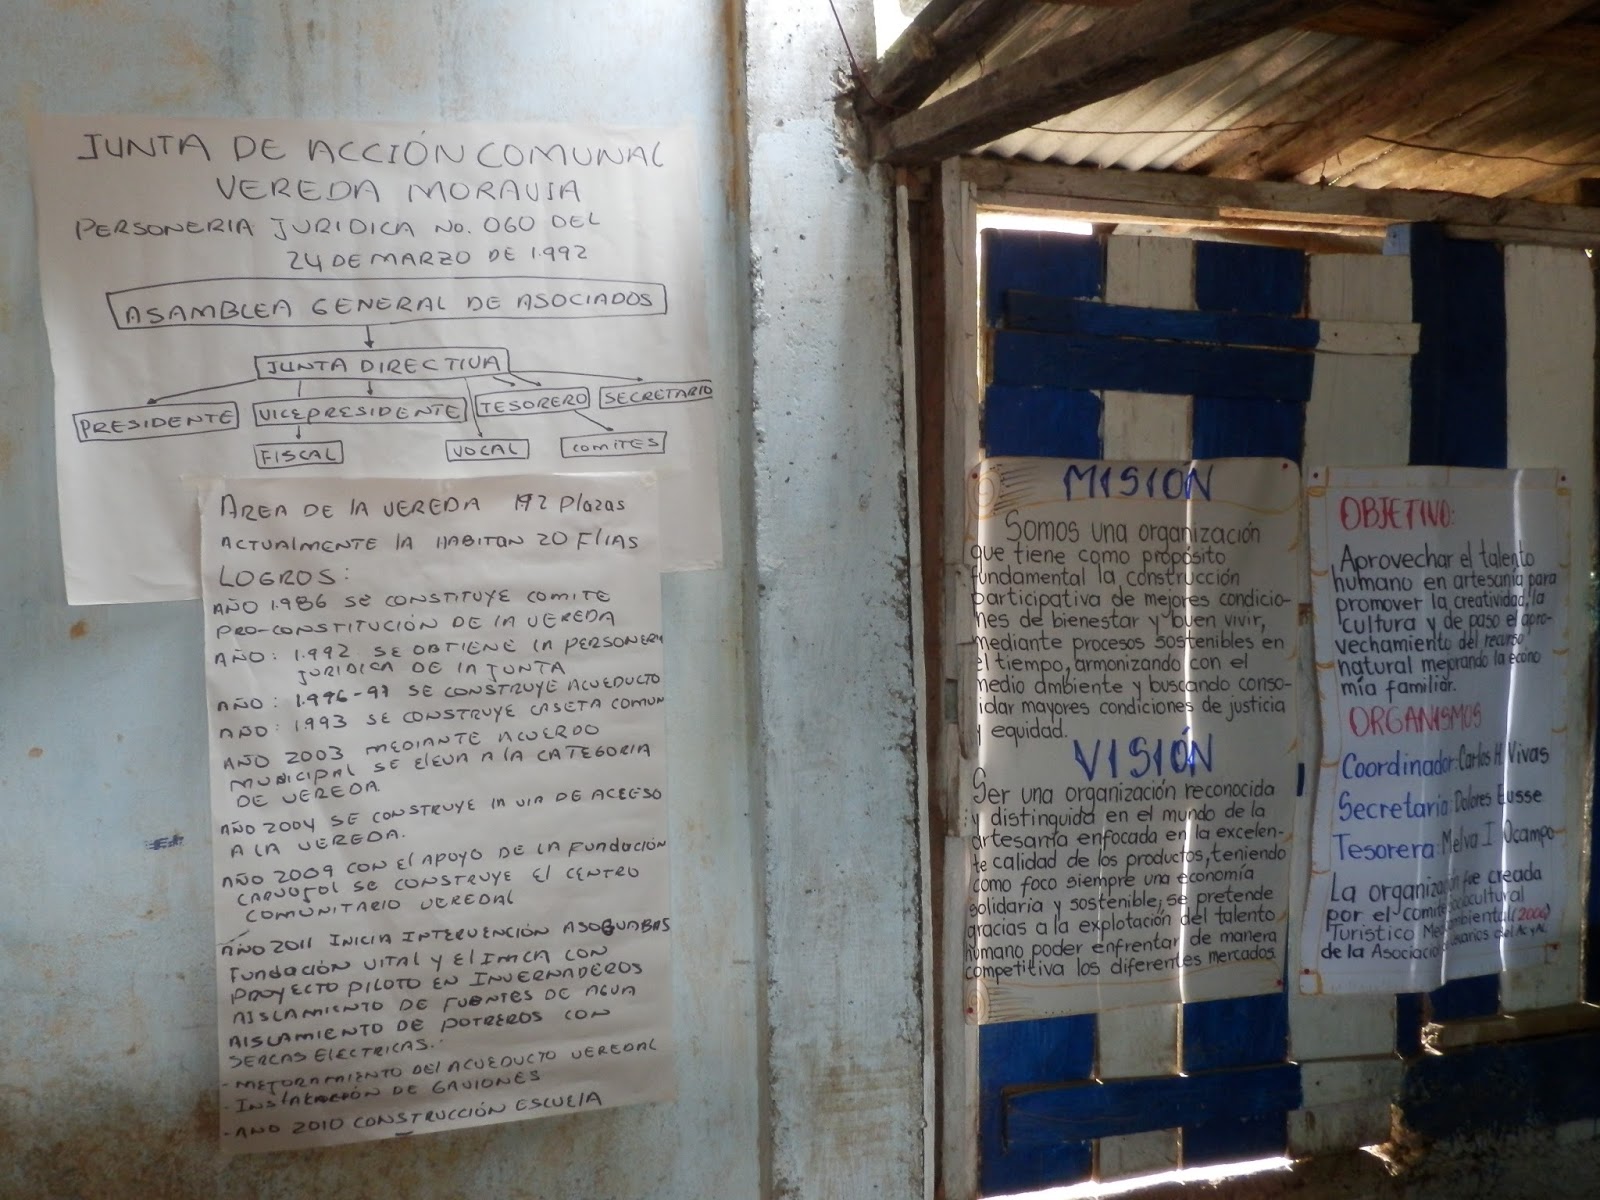 JUNTA DE ACCIÓN COMUNAL
VEREDA MORAVIA
PERSONERIA JURIDICA No. 060 DEL
24 DE MARZO DE 1.992
ASAMBLEA GENERAL DE ASOCIADOS
JUNTA DIRECTIVA
PRESIDENTE
VICEPRESIDENTE
TESORERO
SECRETARIO
FISCAL
VOCAL
COMITES
AREA DE LA VEREDA 192 Plazas
ACTUALMENTE LA HABITAN 20 FLIAS
LOGROS:
AÑO 1.986 SE CONSTITUYE COMITE
PRO-CONSTITUCIÓN DE LA VEREDA
AÑO: 1.992 SE OBTIENE LA PERSONERI
JURIDICA DE LA JUNTA
AÑO: 1.996-97 SE CONSTRUYE ACUEDUCTO
AÑO: 1993 SE CONSTRUYE CASETA COMUN
AÑO 2003 MEDIANTE ACUERDO
MUNICIPAL SE ELEVA A LA CATEGORIA
DE VEREDA
AÑO 2004 SE CONSTRUYE LA VIA DE ACCESO
A LA VEREDA.
AÑO 2009 CON EL APOYO DE LA FUNDACIÓN
SE CONSTRUYE EL CENTRO
COMUNITARIO VEREDAL
AÑO 2011 INICIA INTERVENCIÓN ASOGUABAS
FUNDACIÓN VITAL Y EL IMCA CON
PROYECTO PILOTO EN INVERNADEROS
AISLAMIENTO DE FUENTES DE AGUA
AISLAMIENTO DE POTREROS CON
SERCAS ELECTRICAS.
- MEJORAMIENTO DEL ACUEDUCTO VEREDAL
- INSTALACIÓN DE GAVIONES
- AÑO 2010 CONSTRUCCIÓN ESCUELA
MISIÓN
Somos una organización
que tiene como propósito
fundamental la construcción
participativa de mejores condicio-
nes de bienestar y buen vivir,
mediante procesos sostenibles en
el tiempo, armonizando con el
medio ambiente y buscando conso-
lidar mayores condiciones de justicia
y equidad.
VISIÓN
Ser una organización reconocida
y distinguida en el mundo de la
artesanía enfocada en la excelen-
te calidad de los productos, teniendo
como foco siempre una economía
solidaria y sostenible, se pretende
gracias a la explotación del talento
humano poder enfrentar de manera
competitiva los diferentes mercados.
OBJETIVO:
Aprovechar el talento
humano en artesanía para
promover la creatividad, la
cultura y de paso el apro-
vechamiento del recurso
natural mejorando la econo
mía familiar.
ORGANISMOS
Coordinador: Carlos H Vivas
Secretaria: Dolores Eusse
Tesorera: Melva I Ocampo
La organización fue creada
por el comité sociocultural
Turístico
de la